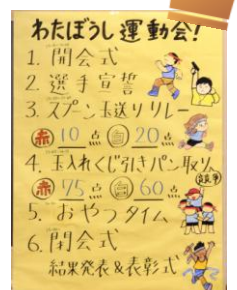 わたぼうし運動会!
1. 開会式
2. 選手宣誓
3. スプーン玉送りリレー
赤 10点 白 20点
4. 玉入れくじ引きパン取り競争
赤 75点 白 60点
5. おやつタイム
6. 閉会式
結果発表&表彰式